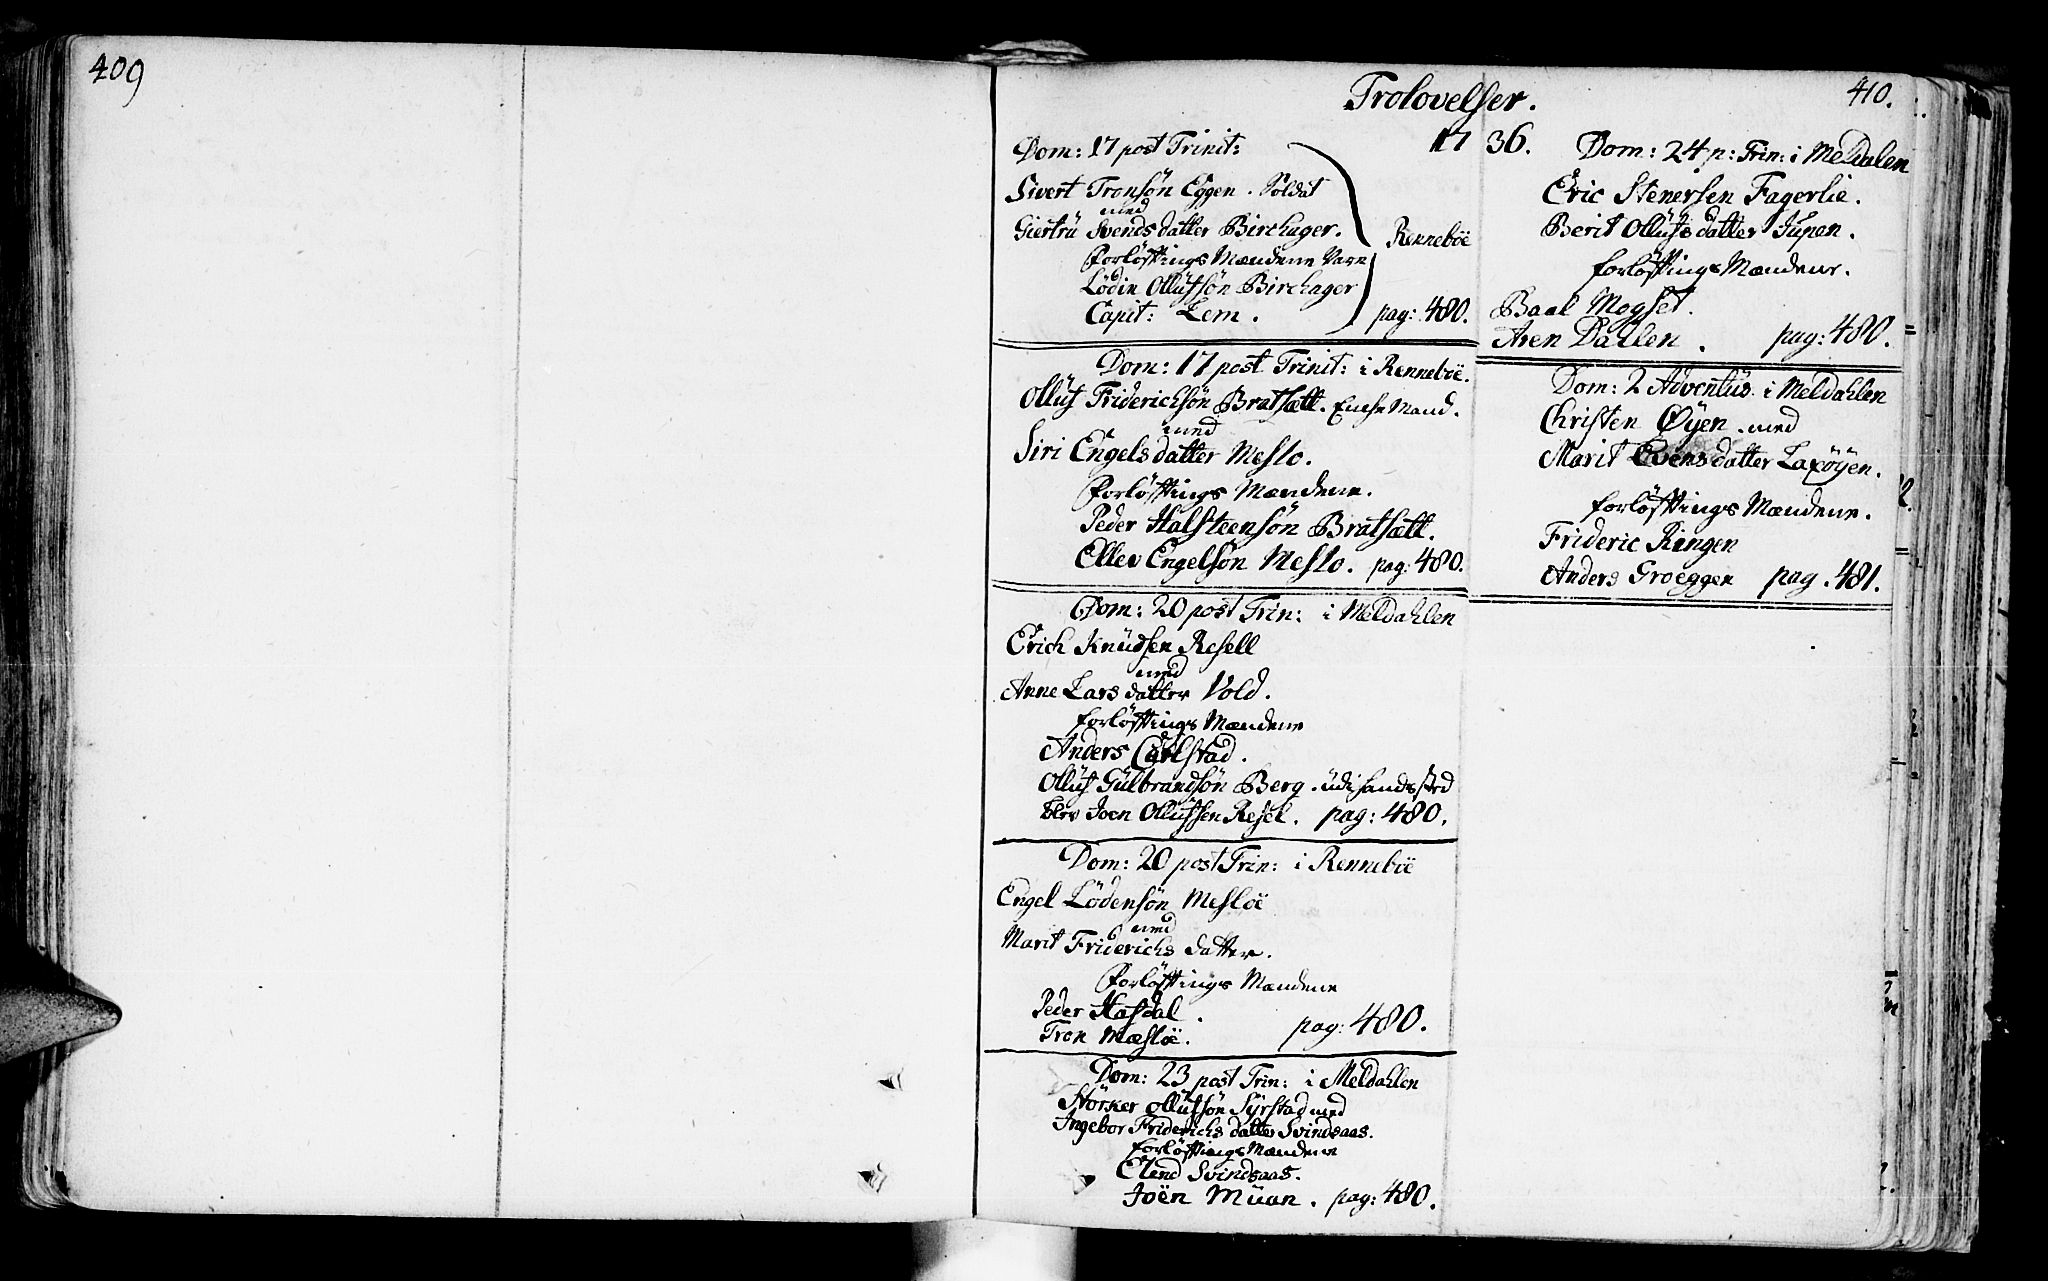 409
Trolovelser.
410.
17 36.
Dom: 17 post Trinit:
Sivert Tronsön Eggen. Soldat
med
Giertrü Svendsdatter Birchager.
Renneböe
Forlöftings Mændene Vare
Lödin Ollüfsön Birchager
Capit: Lem.
pag: 480.
Dom: 17 post Trinit: i Renneböe.
Ollüf Friderichsön Bratsætt. Encke Mand.
med
Siri Engelsdatter Meslo.
Forlöftings Mændene.
Peder Halsteensön Bratsætt.
Ellev Engelsön Meslo. pag: 480.
Dom: 20 post Trin: i Meldahlen
Erich Knüdsen Resell
med
Anne Larsdatter Vold.
forlöftings Mændene
Anders Carlstad.
Ollüf Gülbrandsön Berg. üdi hands sted
blev Joen Ollüfsen Resel. pag: 480.
Dom: 20 post Trin: i Renneböe
Engel Lödensön Meslöe
med
Marit Friderichs datter.
Forlöftings Mændene
Peder Hasdal.
Tron Mæslöe.
pag: 480.
Dom: 23 post Trin: i Meldahlen
Störker Ollüfsön Syrstad med
Ingebor Friderichs datter Svindsaas.
forlöftings Mændene
Elend Svindsaas.
Joën Müan. pag: 480.
Dom: 24 p: Trin: i Meldalen
Eric Stenersen Fagerlie.
Berit Ollüfsdatter Jupan.
forlöftings Mændene.
Baal Mogset.
Aren Dahlen.
pag: 480.
Dom: 2 Adventüs i Meldahlen
Christen Øyen. med
Marit Evensdatter Laxöyen.
forlöftings Mændene.
Frideric Ringen
Anders Groeggen pag. 481.